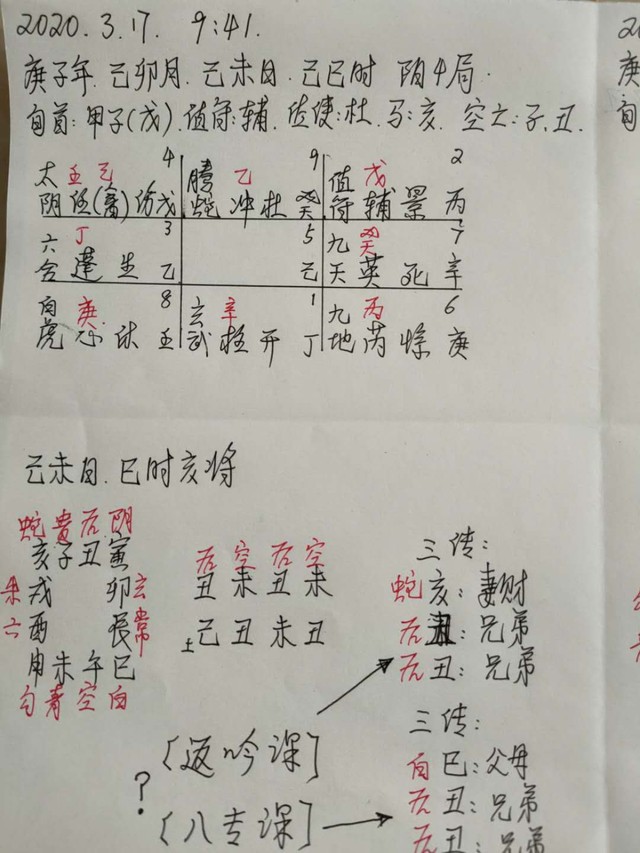 2020.3.17. 9:41.
庚子年.己卯月.己未日.己巳时 阴4局.
旬首:甲子(戊).值符:辅.值使:杜.马:亥.空亡:子.丑.
太 壬己 4 腾 乙 9 值 戊 2
阴任(禽)伤戊 蛇冲杜癸 符辅景丙
六 丁 3 5 九 癸 7
合蓬生乙 己 天英死辛
白 庚 8 玄 辛 1 九 丙 6
虎心休壬 武柱开丁 地芮惊庚
己未日.巳时亥将
蛇贵后阴
亥子丑寅 后空后空 三传:
朱戌 卯玄 丑未丑未 蛇亥:妻财
六酉 辰常 土己丑未丑 后丑:兄弟
申未午巳 后丑:兄弟
勾青空白
三传:
〔返吟课〕 白巳:父母
? 后丑:兄弟
〔八专课〕 后丑:兄弟
20
庚
旬